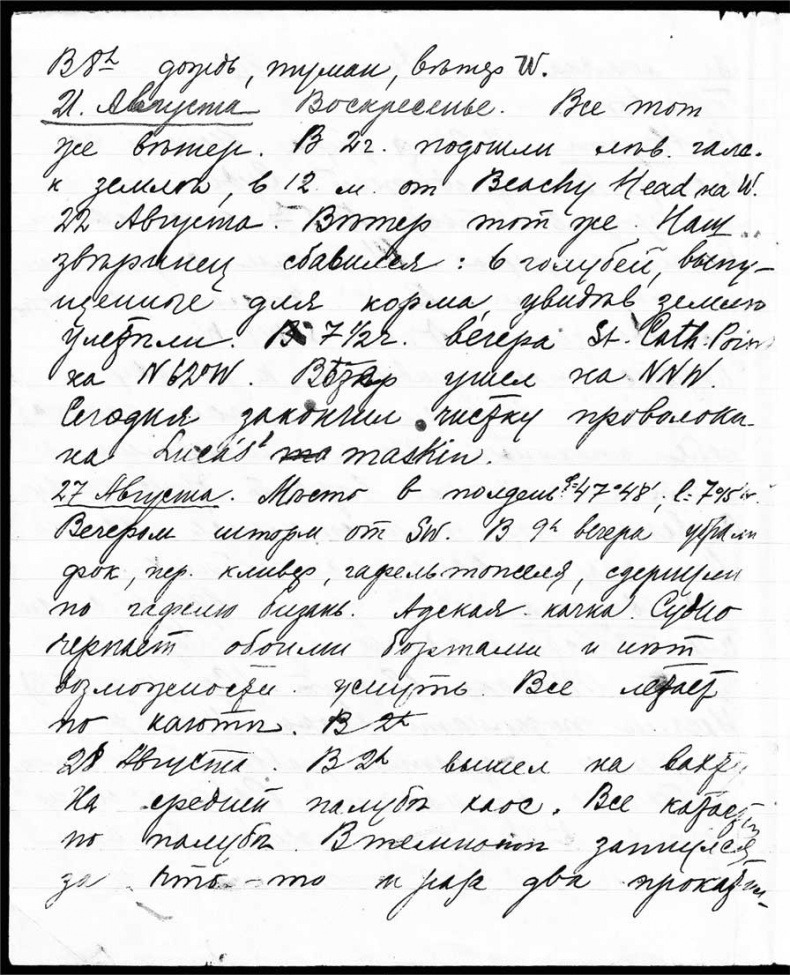 В 8ч дождь, туман, вѣтер W.
21. Августа Воскресенье. Все тот
же вѣтер. В 2 г. подошли лѣв. гала.
к землѣ, в 12. м. от Beachy Head на W.
22 Августа. Вѣтер тот же. Наш
звѣринец сбавился: 6 голубей, выпу-
щенные для корма, увидѣв землю
улетѣли. В 7 1/2 г. вечера St. Cath. Point
на N 62° W. Вѣтер ушел на NNW
Сегодня закончили чистку проволоки
на Lucas's maskin.
27 Августа. Мѣсто в полдень φ=47°48';
Вечером шторм от SW. В 9ч вечера убрали
фок, пер. кливер, гафельтопселя, сдернули
по гафелю бизань. Адская качка. Судно
черпает обоими бортами и нѣт
возможности уснуть. Все летает
по каютѣ. В 2ч
28 Августа. В 2ч вышел на вахту
На средней палубѣ хаос. Все катается
по палубѣ. В темнотѣ запнулся
за что-то и раза два прокати-